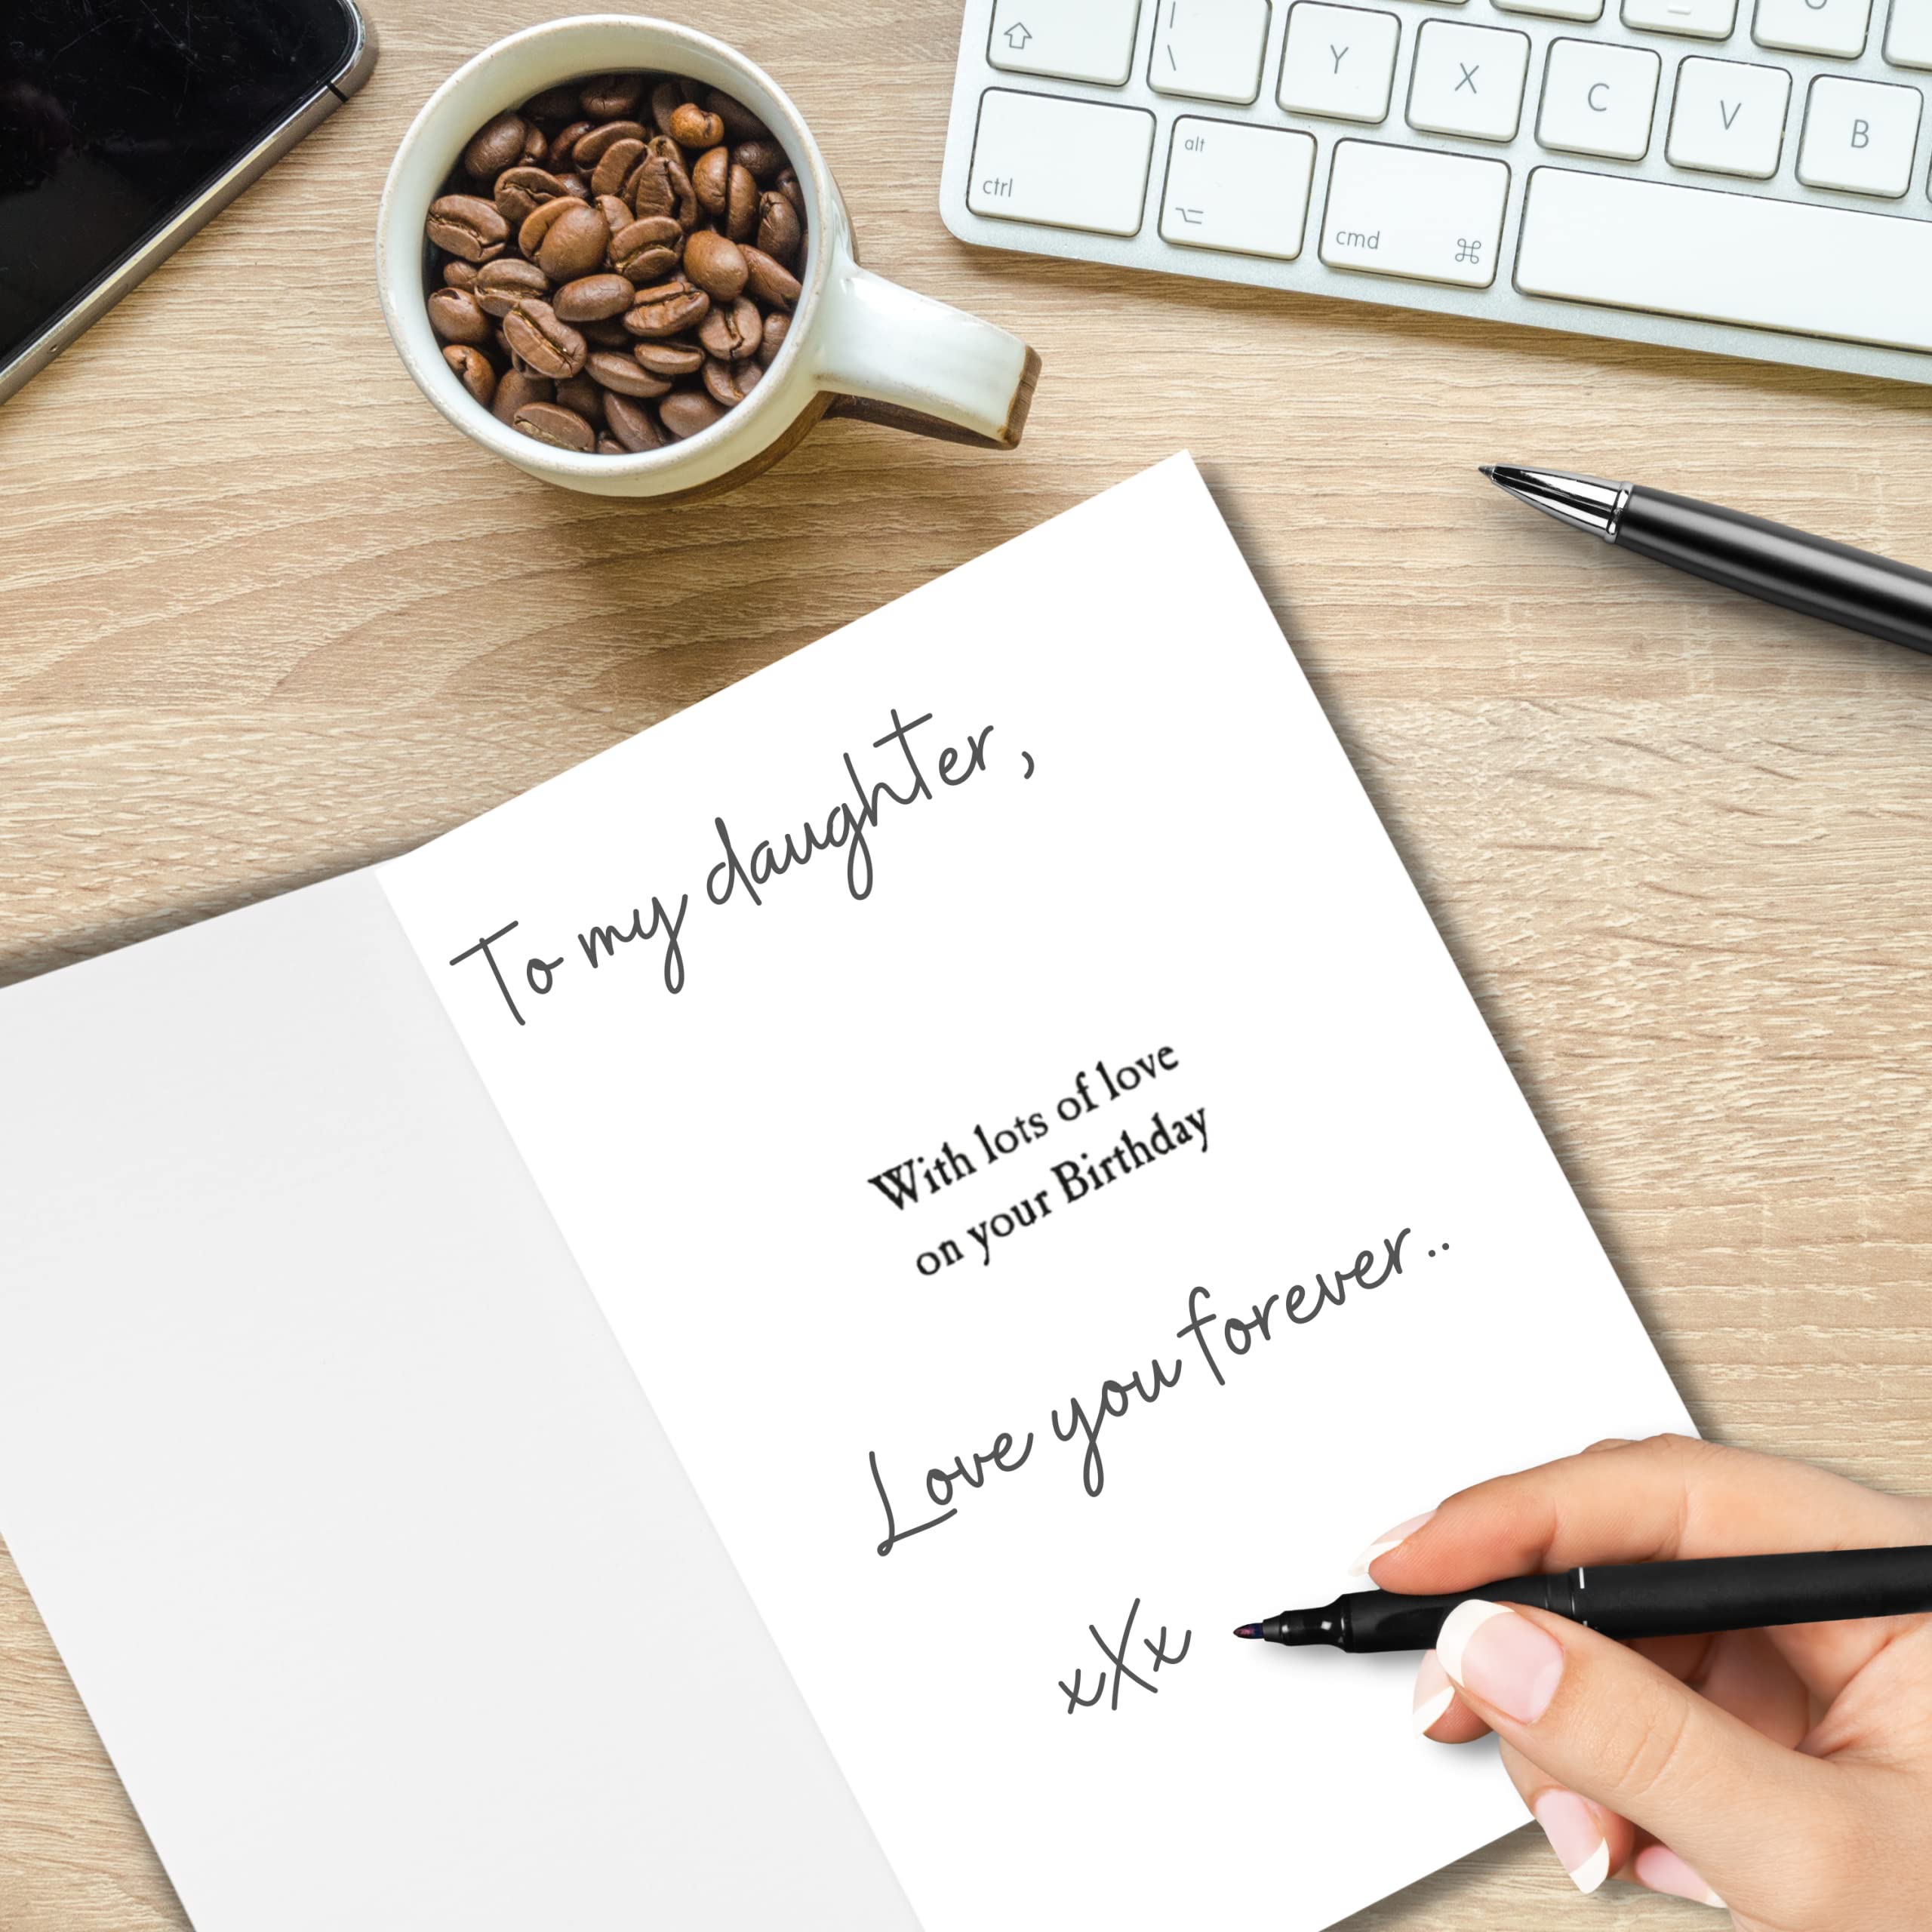 Y X C V B
ctrl alt cmd ⌘
To my daughter,
With lots of love
on your Birthday
Love you forever..
xXx